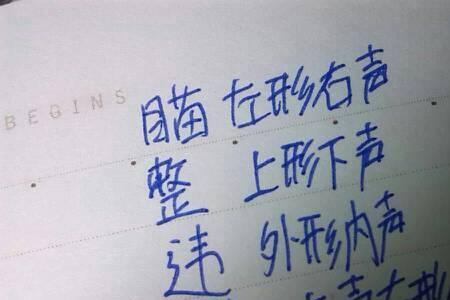 BEGINS
瞄 左形右声
整 上形下声
违 外形内声